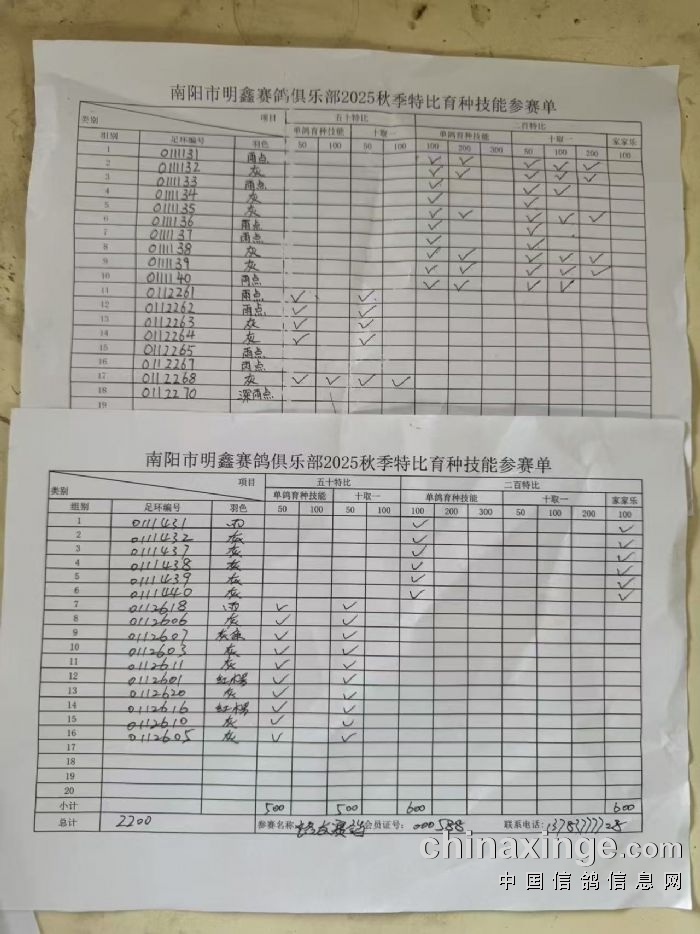 南阳市明鑫赛鸽俱乐部2025秋季特比育种技能参赛单
类别 项目 五十特比 二百特比
单鸽育种技能 十取一 单鸽育种技能 十取一 家家乐
组别 足环编号 羽色 50 100 50 100 100 200 300 50 100 200 100
1 0111131 雨点
2 0111132 灰 ✓ ✓ ✓ ✓ ✓
3 0111133 雨点 ✓ ✓ ✓ ✓ ✓
4 0111134 灰 ✓ ✓ ✓
5 0111135 灰 ✓
6 0111136 雨点 ✓ ✓ ✓ ✓ ✓
7 0111137 雨点 ✓ ✓
8 0111138 灰 ✓ ✓
9 0111139 灰 ✓ ✓ ✓ ✓ ✓
10 0111140 雨点 ✓ ✓ ✓ ✓ ✓
11 0112261 雨点 ✓ ✓
12 0112262 雨点 ✓ ✓
13 0112263 灰 ✓ ✓
14 0112264 灰 ✓ ✓
15 0112265 雨点
16 0112267 雨点
17 0112268 灰 ✓ ✓ ✓ ✓
18 0112270 深雨点
19
南阳市明鑫赛鸽俱乐部2025秋季特比育种技能参赛单
类别 项目 五十特比 二百特比
单鸽育种技能 十取一 单鸽育种技能 十取一 家家乐
组别 足环编号 羽色 50 100 50 100 100 200 300 50 100 200 100
1 0111431 雨 ✓ ✓
2 0111432 灰 ✓ ✓
3 0111437 灰 ✓ ✓
4 0111438 灰 ✓ ✓
5 0111439 灰 ✓ ✓
6 0111440 灰 ✓ ✓
7 0112618 雨 ✓ ✓
8 0112606 灰 ✓ ✓
9 0112607 ✓ ✓
10 0112603 灰 ✓ ✓
11 0112611 灰 ✓ ✓
12 0112601 ✓ ✓
13 0112620 灰 ✓ ✓
14 0112616 ✓ ✓
15 0112610 灰 ✓ ✓
16 0112605 灰 ✓ ✓
17
18
19
20
小计 500 500 600 600
总计 2200 参赛名称: 会员证号: 000588 联系电话:
chinaxinge.com
中国信鸽信息网